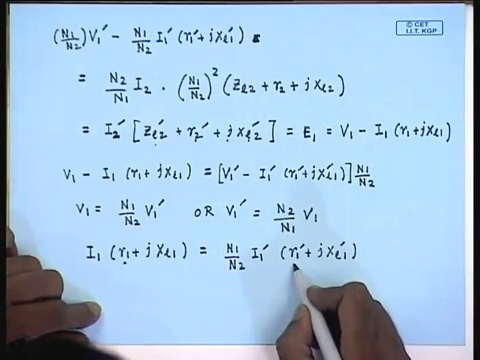 © CET
I.I.T. KGP
(N1/N2)V1′ − N1/N2 I1′ (r1′ + jxl1′) =
= N2/N1 I2 · (N1/N2)² (Zl2 + r2 + jxl2)
= I2′ [Zl2′ + r2′ + jxl2′] = E1 = V1 − I1 (r1 + jxl1)
V1 − I1 (r1 + jxl1) = [V1′ − I1′ (r1′ + jxl1′)] N1/N2
V1 = N1/N2 V1′ OR V1′ = N2/N1 V1
I1 (r1 + jxl1) = N1/N2 I1′ (r1′ + jxl1′)